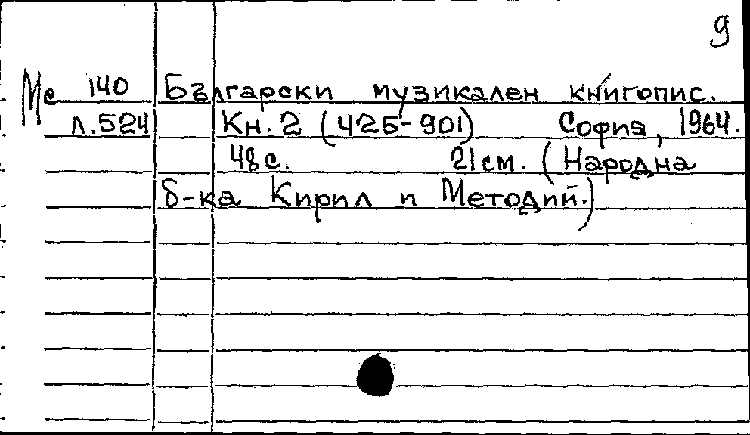 9
Ме 140 Български музикален книгопис.
л.524 Кн. 2 (425-901) София, 1964.
48 с. 21 см. (Народна
б-ка Кирил и Методий.)